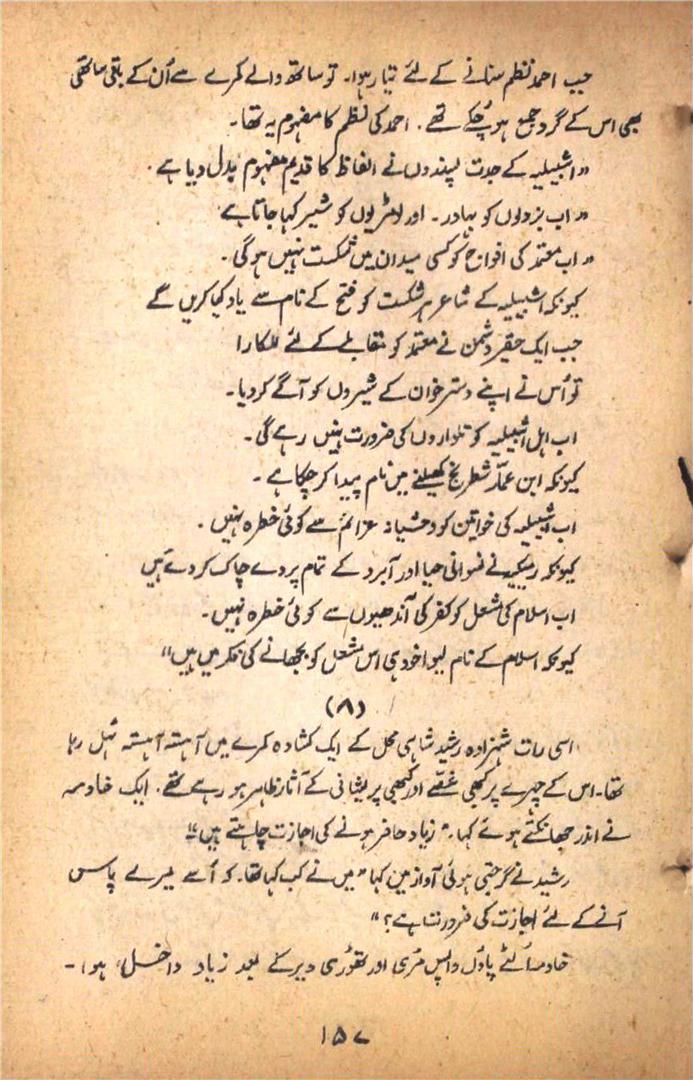 جب احمد نظم سنانے کے لئے تیار ہوا۔ تو ساتھ والے کمرے سے اُن کے باقی ساتھی
بھی اس کے گرد جمع ہو چُکے تھے۔ احمد کی نظم کا مفہوم یہ تھا۔
"اشبیلیہ کے جدت پسندوں نے الفاظ کا قدیم مفہوم بدل دیا ہے۔
"اب بزدلوں کو بہادر۔ اور لومڑیوں کو شیر کہا جاتا ہے
"اب معتمد کی افواج کو کسی میدان میں شکست نہیں ہو گی۔
کیونکہ اشبیلیہ کے شاعر ہر شکست کو فتح کے نام سے یاد کیا کریں گے
جب ایک حقیر دشمن نے معتمد کو مقابلے کے لئے للکارا
تو اُس نے اپنے دستر خوان کے شیروں کو آگے کر دیا۔
اب اہل اشبیلیہ کو تلواروں کی ضرورت نہیں رہے گی۔
کیونکہ ابن عمار شطرنج کھیلنے میں نام پیدا کر چکا ہے۔
اب اشبیلیہ کی خواتین کو وحشیانہ عزائم سے کوئی خطرہ نہیں۔
کیونکہ رمیکیہ نے نسوانی حیا اور آبرو کے تمام پردے چاک کر دئے ہیں
اب اسلام کی مشعل کو کفر کی آندھیوں سے کوئی خطرہ نہیں۔
کیونکہ اسلام کے نام لیوا خود ہی اس مشعل کو بجھانے کی فکر میں ہیں"
(۸)
اسی رات شہزادہ رشید شاہی محل کے ایک کشادہ کمرے میں آہستہ آہستہ ٹہل رہا
تھا۔ اس کے چہرے پر کبھی غصّے اور کبھی پریشانی کے آثار ظاہر ہو رہے تھے۔ ایک خادمہ
نے اندر جھانکتے ہوئے کہا۔ "زیاد حاضر ہونے کی اجازت چاہتے ہیں"
رشید نے گرجتی ہوئی آواز میں کہا "میں نے کب کہا تھا۔ کہ اُسے میرے پاس
آنے کے لئے اجازت کی ضرورت ہے؟"
خادمہ اُلٹے پاؤں واپس مُڑی اور تھوڑی دیر کے بعد زیاد داخل ہوا۔
۱۵۷